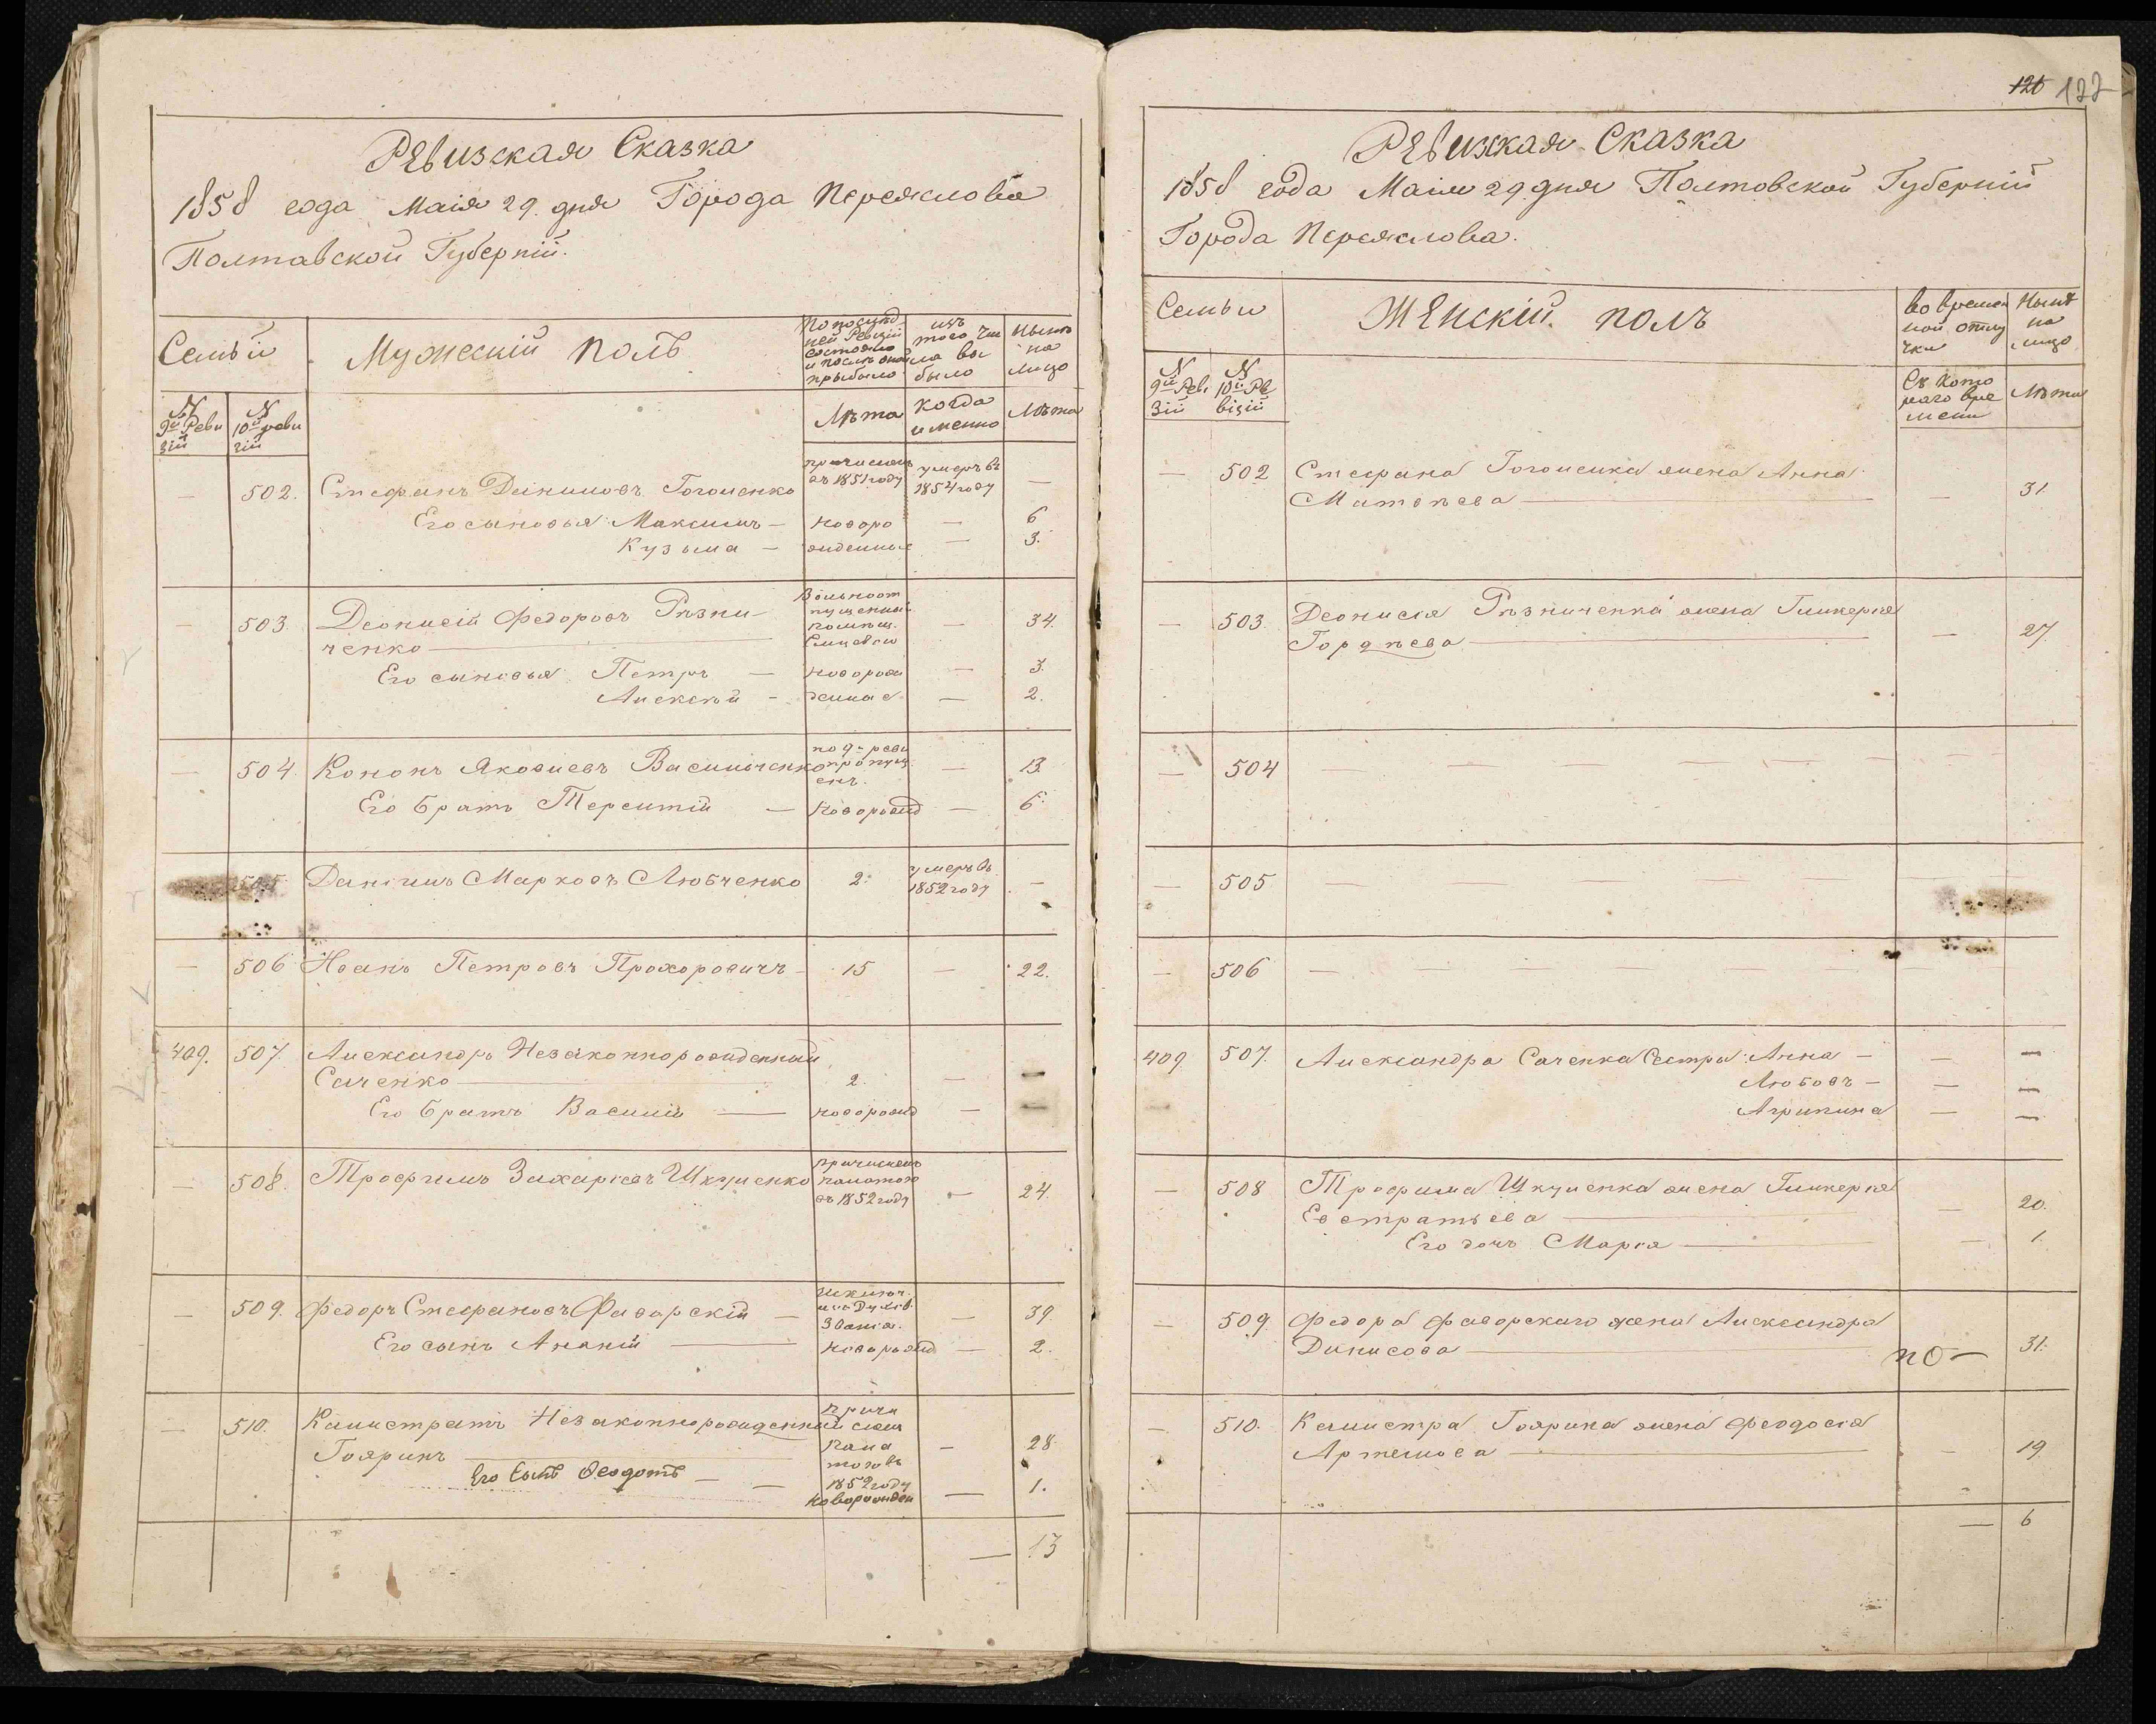 Ревизская Сказка
1858 года Маія 29. дня Города Переяслова
Полтавской Губерніи.
Семьи
Мужескій полъ
По послѣд
ней Ревизіи
состояло
и послѣ оной
прибыло
изъ
того чи
сла вы
было
Нынѣ
на
лицо
№
9й Реви
зіи
№
10й реви
зіи
Лѣта
когда
именно
Лѣта
— 502. Стефанъ Даниловъ Гоголенко
причисленъ
въ 1851 году
умеръ въ
1854 году
—
Его сыновья: Максимъ — новоро — 6
Кузьма — жденные — 3.
— 503. Деонисій Федоровъ Рѣзни
ченко
Вольноот
пущенный
помѣщ.
— 34.
Его сыновья Петръ — новорож — 3.
Алексѣй — денные — 2.
— 504. Кононъ Яковлевъ Васильченко
по 9й реви
пропущ
енъ.
— 13.
Его братъ Терентій — новорожд — 6.
505. Даніилъ Марковъ Любченко 2. умеръ въ
1852 году —
— 506 Иванъ Петровъ Прохоровичъ — 15 — 22.
409. 507. Александръ Незаконнорожденный
Саченко 2. — —
Его братъ Василій — новорожд — —
— 508. Трофимъ Захаріевъ Шкуленко
причисленъ
въ 1852 году
— 24.
— 509. Федоръ Стефановъ Фаворскій —
исключ.
изъ Духов.
Званія.
— 39.
Его сынъ Ананій — новорожд — 2.
— 510. Калистратъ Незаконнорожденный
Гояринъ
причи
сленъ
1852 году
— 28.
Его сынъ Феодотъ — новорожден — 1.
— 13
126 122
Ревизская Сказка
1858 года Маія 29 дня Полтовской Губерніи
Города Переяслова.
Семьи
Женскій полъ
Во времен
ной отлу
чки
Нынѣ
на
лицо
№
9й Реви
зіи
№
10й Ре
візіи
Съ кото
раго вре
мени
Лѣта
— 502 Стефана Гоголенка жена Анна
Матвѣева — 31.
— 503. Деонисія Рѣзниченка жена Гликерія
Гордѣева — 27.
— 504 — — — — — — —
— 505 — — — — — — —
— 506 — — — — — — —
409. 507. Александра Саченка Сестры: Анна — — —
Любовь — — —
Агрипина — —
— 508 Трофима Шкуленка жена Гликерія
Евстратьева — 20.
Его дочь Марія — 1.
— 509. Федора Фаворскаго жена Александра
Динисова — 31.
по —
— 510. Калистра Гоярина жена Феодосія
Артемова — 19.
— 6